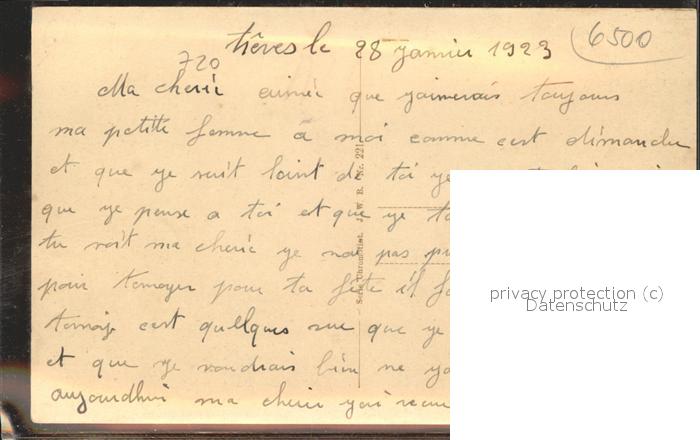 Trêves le 28 janvier 1923
6500
720
Ma cherie aimée que yaimerais toujours
ma petite femme a moi comme cest dimanche
et que ye suit loint de toi ye
que ye pense a toi et que ye
tu voit ma cherie ye nai pas
pour tenvoyer pour ta fête il
cest quellques vue que ye
et que ye voudrais bien ne
aujourdhui ma cherie yai recu
Serie Chromotint. J. W. B. Nr. 221
privacy protection (c)
Datenschutz